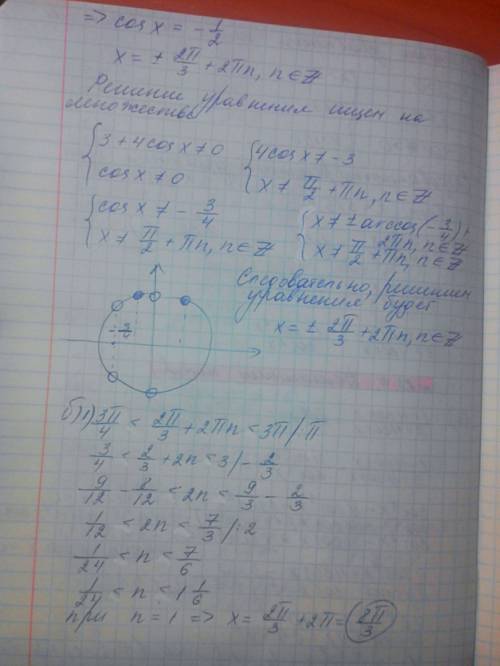 => cos x = -1/2
x = ± 2π/3 + 2πn, n ∈ Z
Решение уравнения ищем на
множестве
{ 3 + 4cos x ≠ 0 { 4cos x ≠ -3
{ cos x ≠ 0 { x ≠ π/2 + πn, n ∈ Z
{ cos x ≠ -3/4 { x ≠ ± arccos(-3/4) + 2πn, n ∈ Z
{ x ≠ π/2 + πn, n ∈ Z { x ≠ π/2 + πn, n ∈ Z
Следовательно, решением
уравнения будет
x = ± 2π/3 + 2πn, n ∈ Z
-3/4
б) 1) 3π/4 < 2π/3 + 2πn < 3π /: π
3/4 < 2/3 + 2n < 3 /- 2/3
9/12 - 8/12 < 2n < 9/3 - 2/3
1/12 < 2n < 7/3 /: 2
1/24 < n < 7/6
1/24 < n < 1 1/6
при n = 1 => x = 2π/3 + 2π = 8π/3